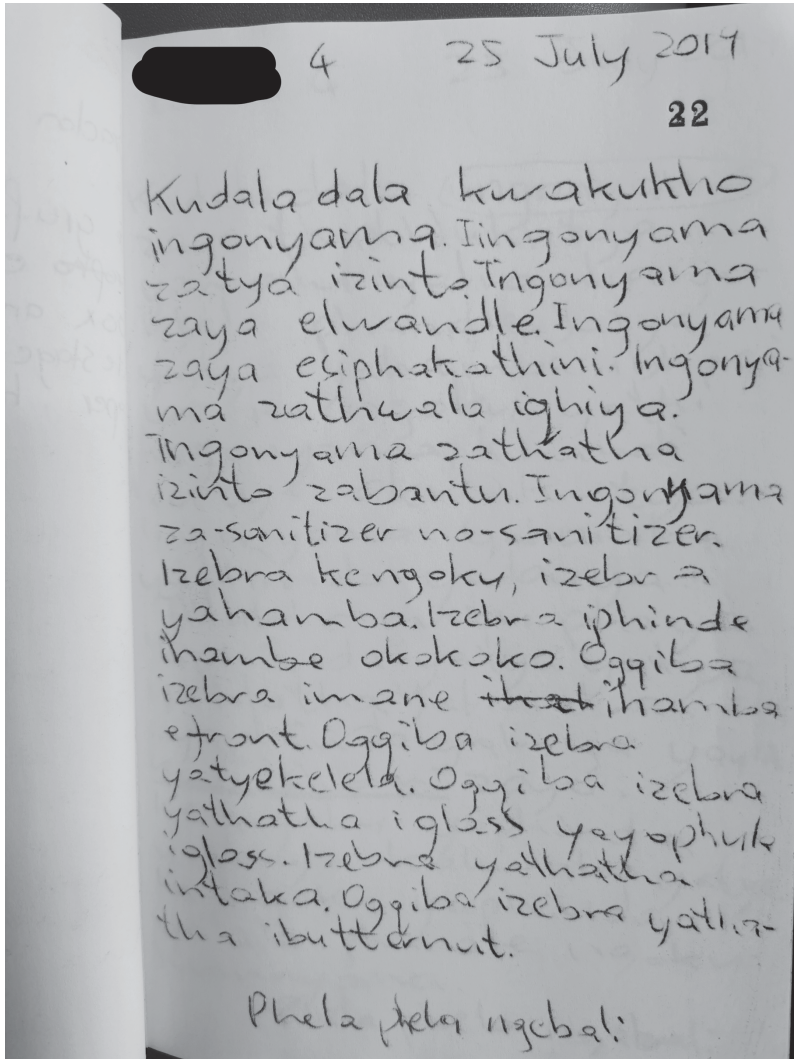 4 25 July 2019
22
Kudala dala kwakukho
ingonyama. Iingonyama
zatya izinto. Ingonyama
zaya elwandle. Ingonyama
zaya esiphakathini. Ingonya-
ma zathwala iqhiya.
Ingonyama zathatha
izinto zabantu. Ingonyama
za-sanitizer no-sanitizer.
Izebra kengoku, izebra
yahamba. Izebra iphinde
ihambe okokoko. Oqqiba
izebra imane ihamba
efront. Oqqiba izebra
yatyekelela. Oqqiba izebra
yathatha iglass yayophule
iglass. Izebra yathatha
intaka. Oqqiba izebra yatha-
tha ibutternut.
Phela phela ngebali